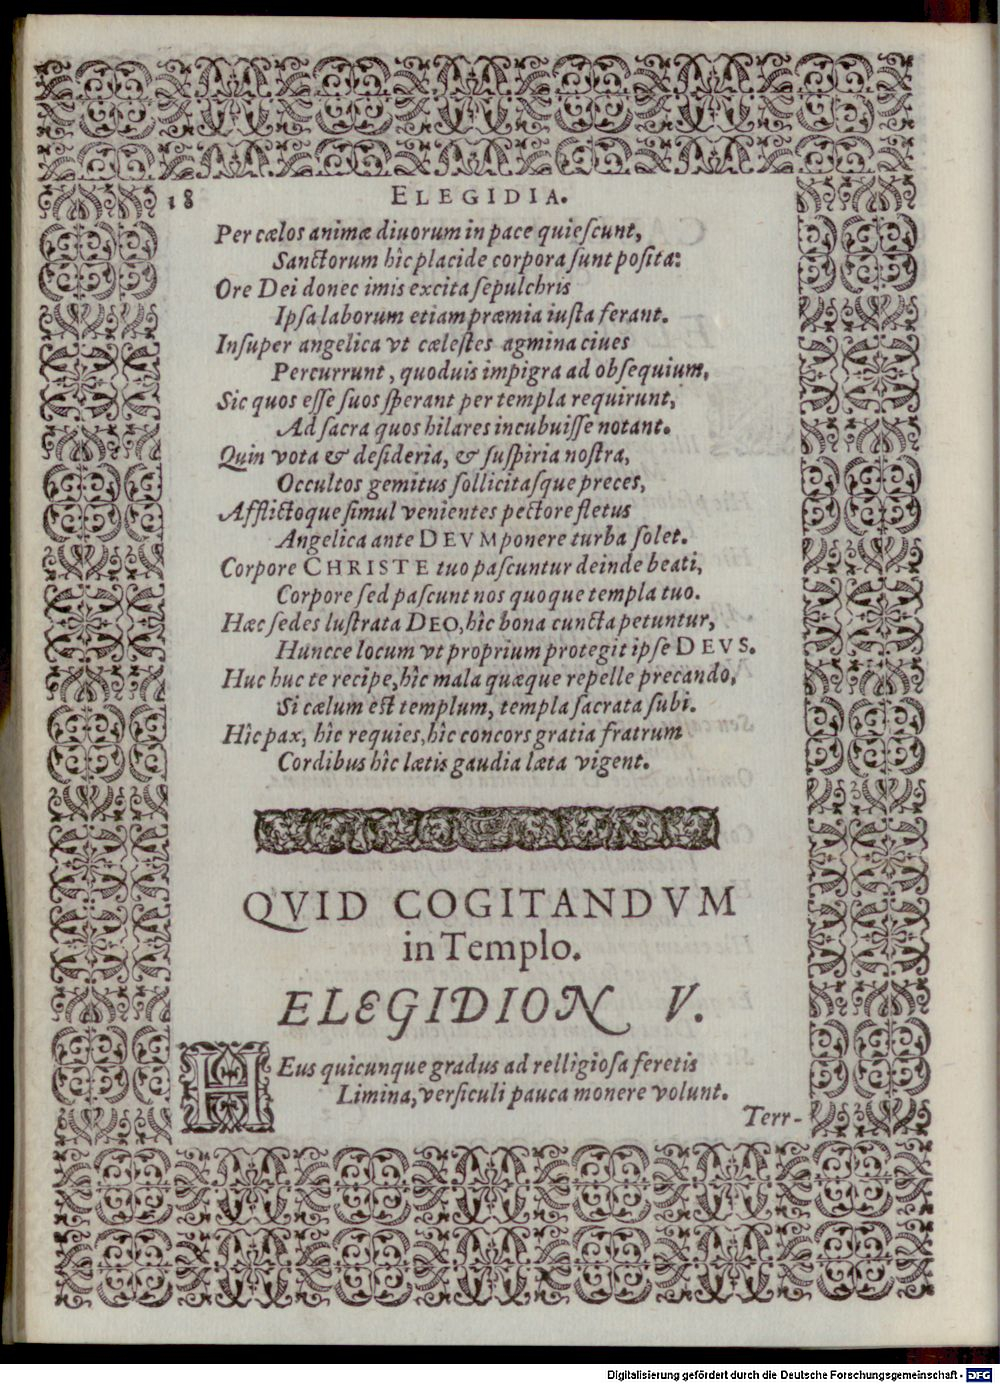 18 ELEGIDIA.
Per cælos animæ diuorum in pace quieſcunt,
Sanctorum hîc placide corpora ſunt poſita:
Ore Dei donec imis excita ſepulchris
Ipſa laborum etiam præmia iuſta ferant.
Inſuper angelica vt cæleſtes agmina ciues
Percurrunt, quoduis impigra ad obſequium,
Sic quos eſſe ſuos ſperant per templa requirunt,
Ad ſacra quos hilares incubuiſſe notant.
Quin vota & deſideria, & ſuſpiria noſtra,
Occultos gemitus ſollicitaſque preces,
Afflictoque ſimul venientes pectore fletus
Angelica ante DEVM ponere turba ſolet.
Corpore CHRISTE tuo paſcuntur deinde beati,
Corpore ſed paſcunt nos quoque templa tuo.
Hæc ſedes luſtrata DEO, hîc bona cuncta petuntur,
Huncce locum vt proprium protegit ipſe DEVS.
Huc huc te recipe, hîc mala quæque repelle precando,
Si cælum eſt templum, templa ſacrata ſubi.
Hîc pax, hîc requies, hîc concors gratia fratrum
Cordibus hîc lætis gaudia læta vigent.
QVID COGITANDVM
in Templo.
ELEGIDION V.
HEus quicunque gradus ad relligioſa feretis
Limina, verſiculi pauca monere volunt.
Terr-
Digitalisierung gefördert durch die Deutsche Forschungsgemeinschaft - DFG